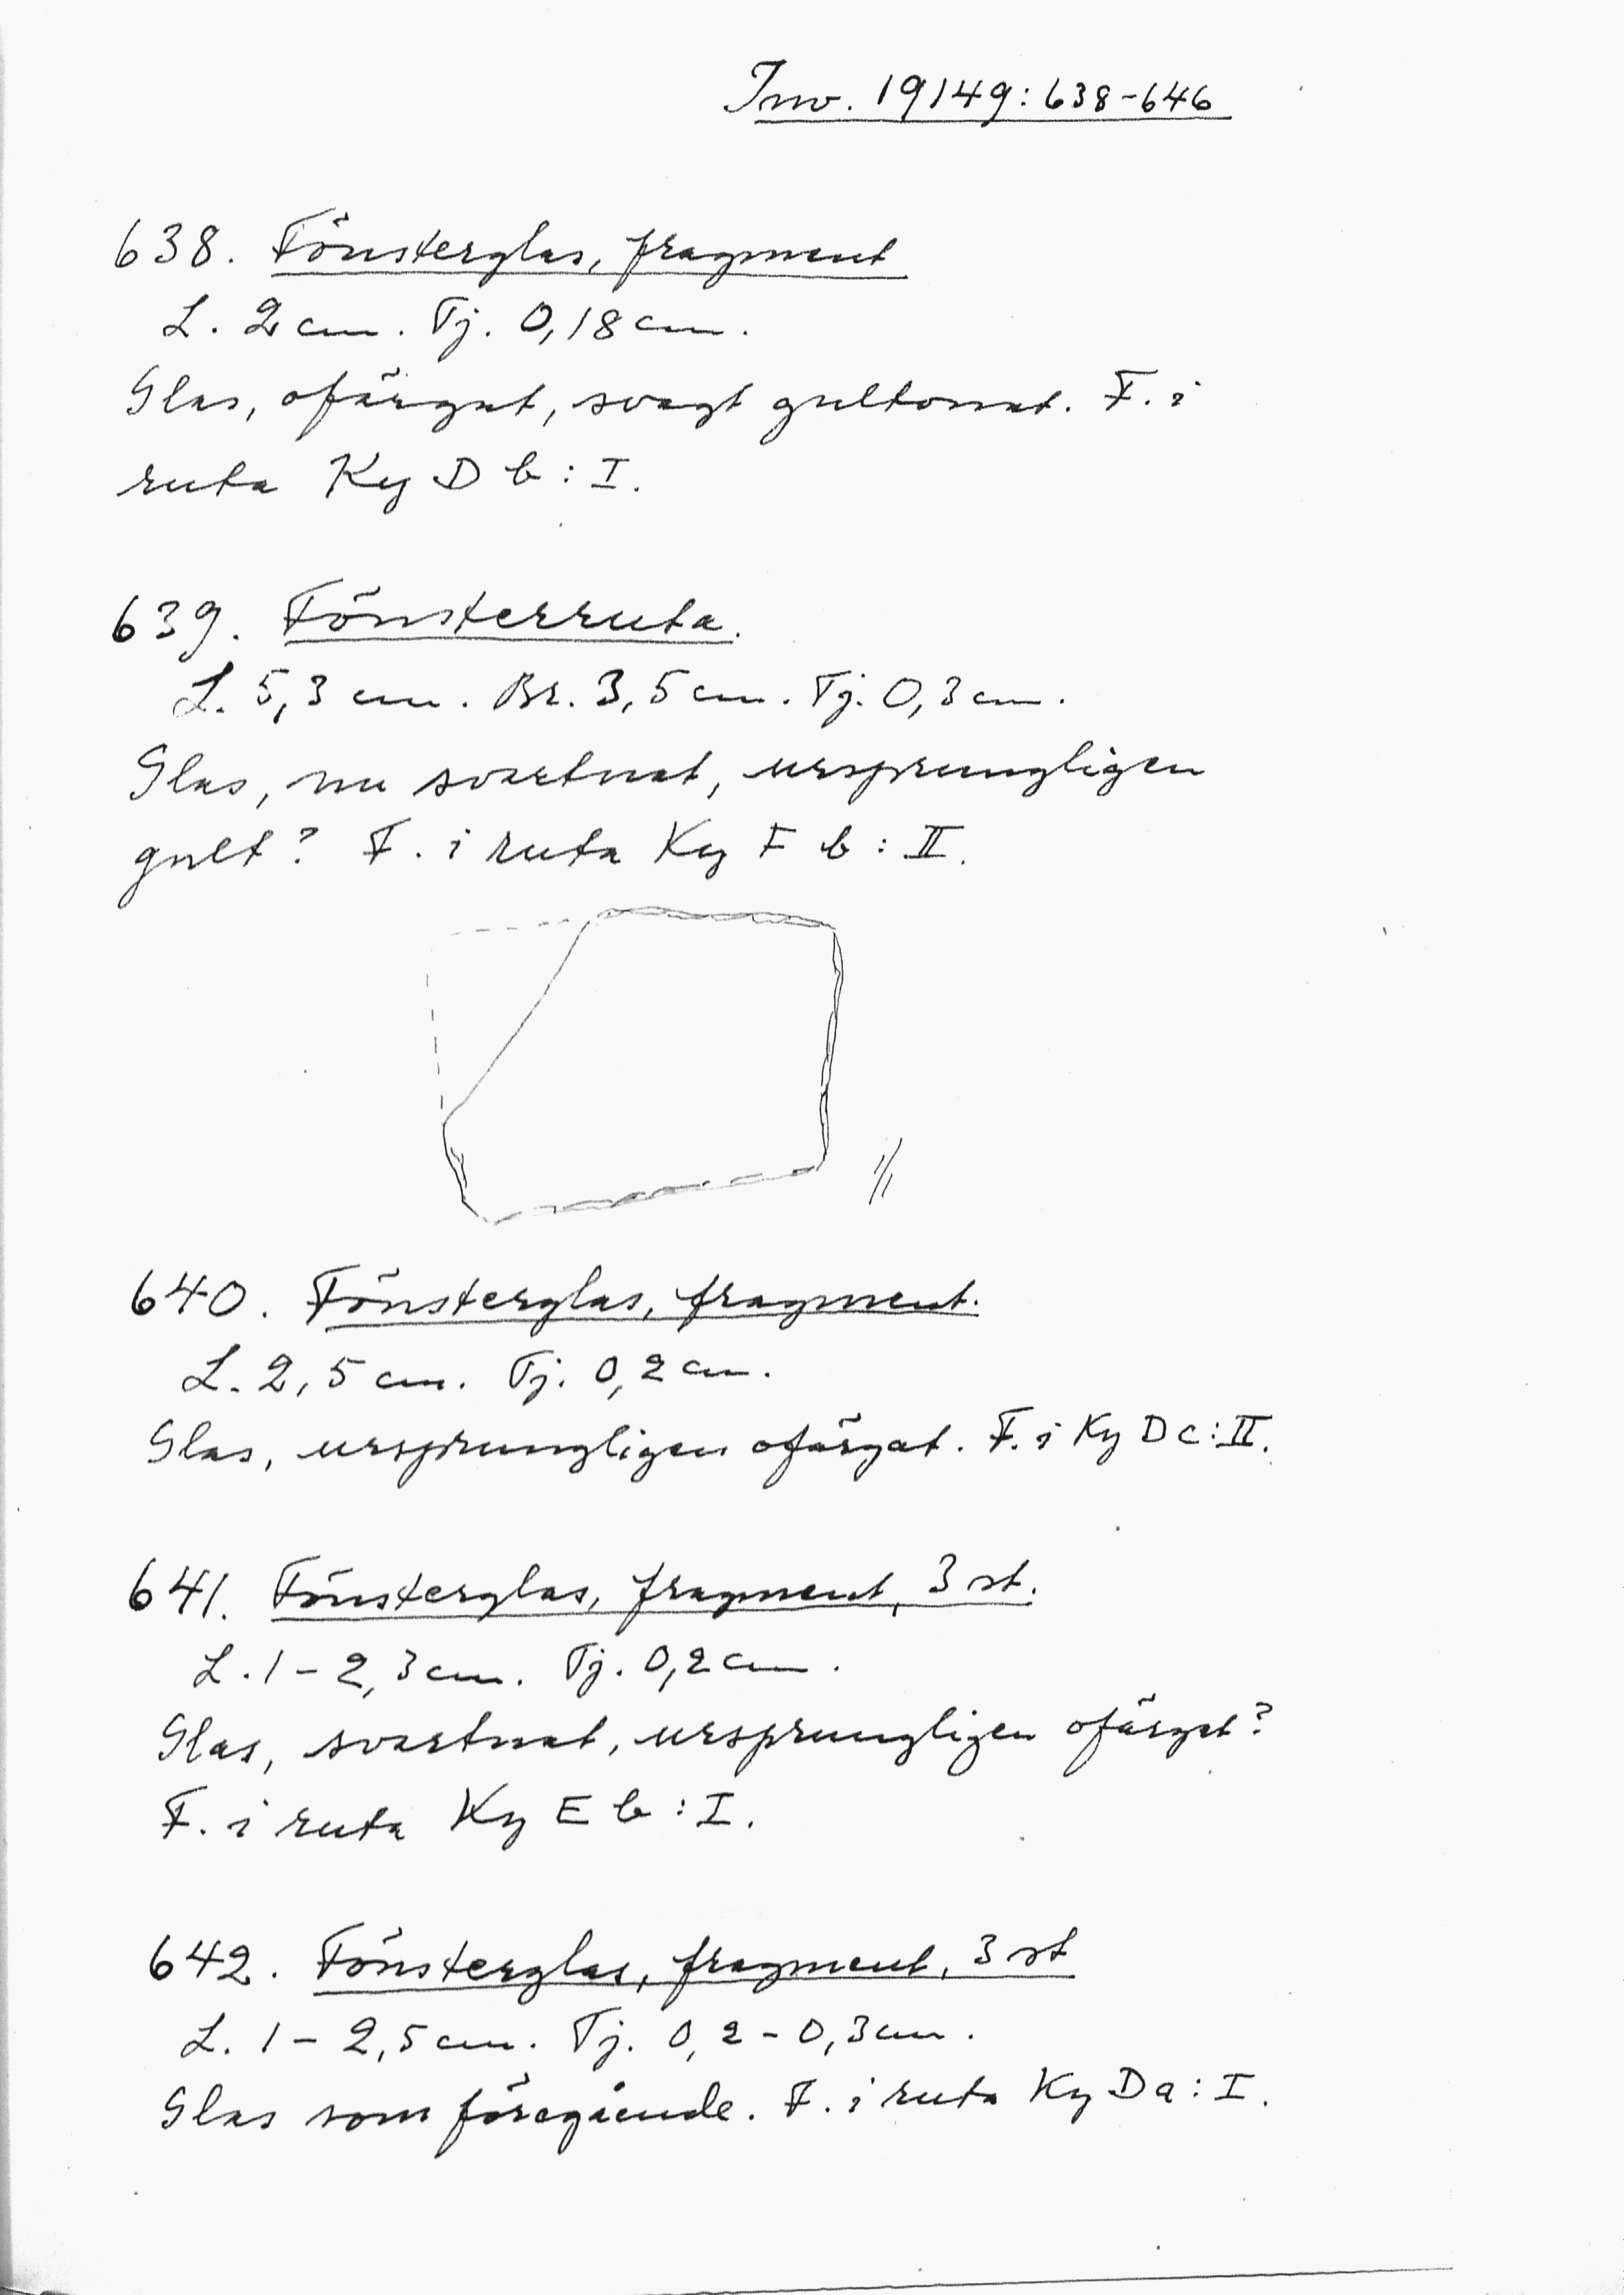 Inv. 19149:638-646
638. Fönsterglas, fragment
L. 2 cm. Tj. 0,18 cm.
Glas, ofärgat, svagt gultonat. F. i
ruta Ky D b : I.
639. Fönsterruta.
L. 5,3 cm. Br. 3,5 cm. Tj. 0,3 cm.
Glas, nu svartnat, ursprungligen
gult? F. i ruta Ky F b : II.
1/1
640. Fönsterglas, fragment.
L. 2,5 cm. Tj. 0,2 cm.
Glas, ursprungligen ofärgat. F. i Ky D c : II.
641. Fönsterglas, fragment, 3 st.
L. 1 - 2,3 cm. Tj. 0,2 cm.
Glas, svartnat, ursprungligen ofärgat?
F. i ruta Ky E b : I.
642. Fönsterglas, fragment, 3 st
L. 1 - 2,5 cm. Tj. 0,2 - 0,3 cm.
Glas som föregående. F. i ruta Ky D a : I.